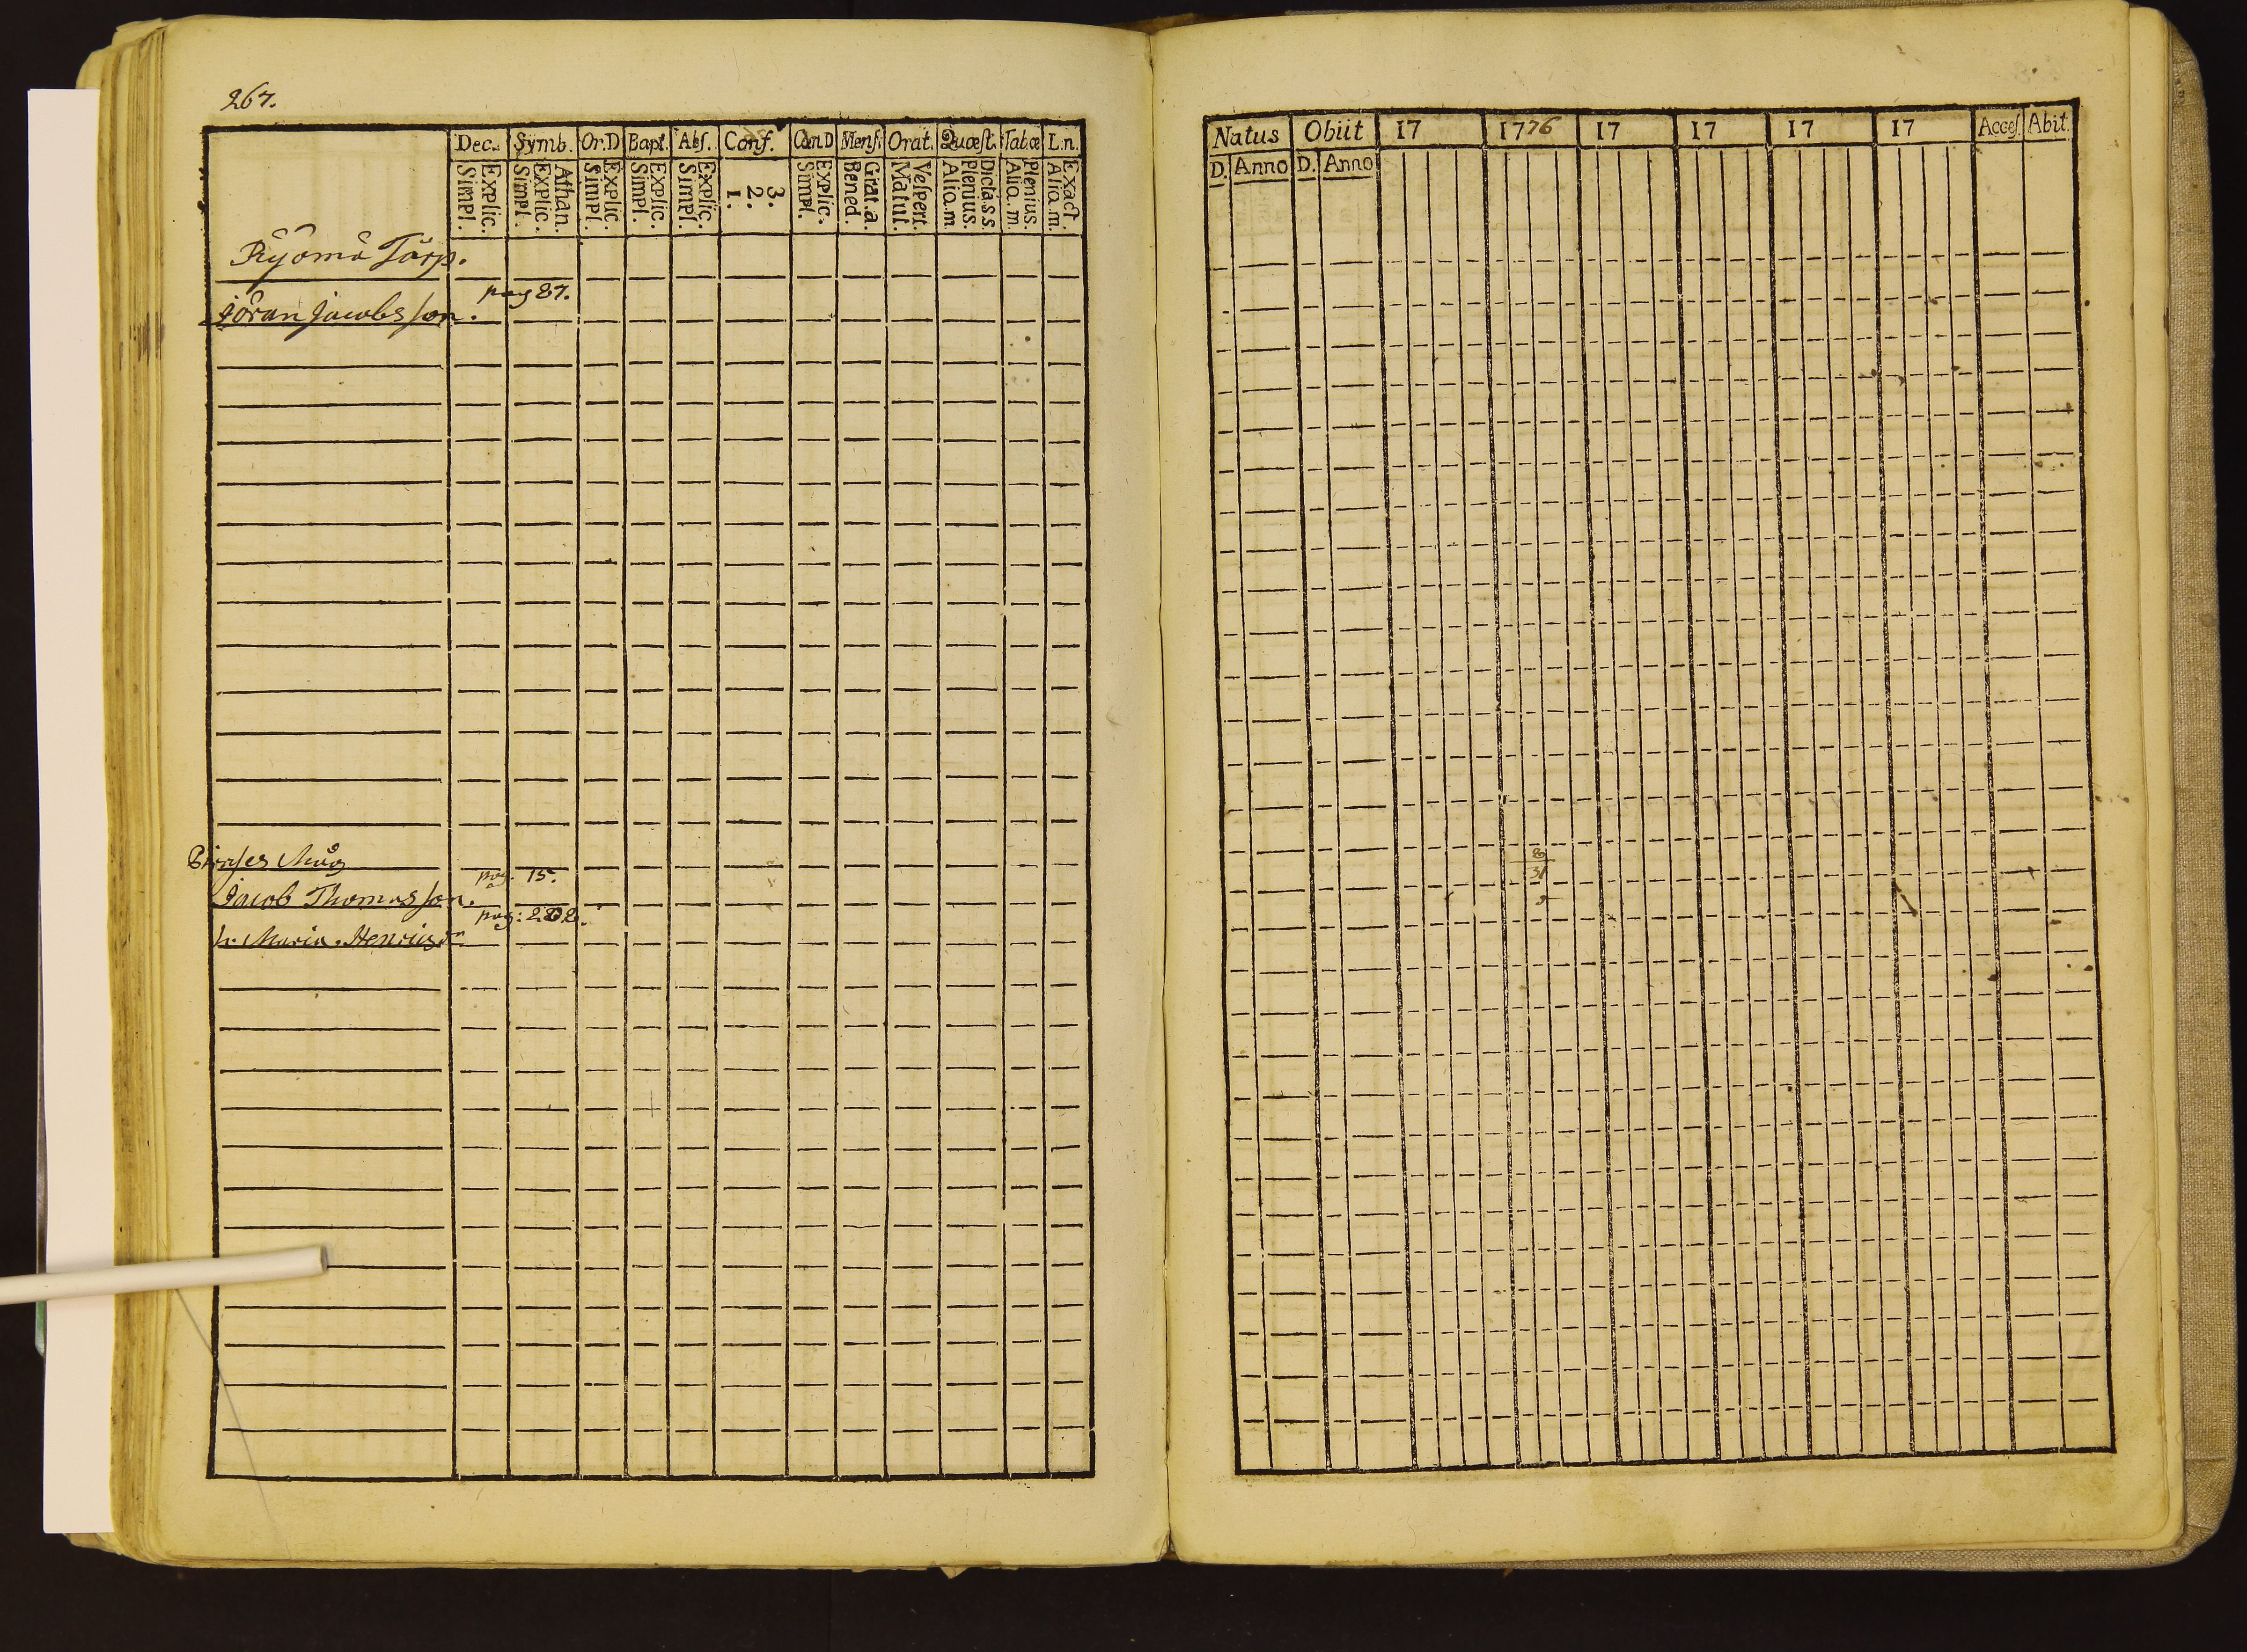 267.
Dec. Symb. Or.D Bapt. Abſ. Conf. Cœn.D Menſ. Orat. Quæſt. Tabœ L.n.
Simpl. Explic. Simpl. Explic. Athan. Simpl. Explic. Simpl. Explic. Simpl. Explic. 1. 2. 3. Simpl. Explic. Bened. Grat.a. Matut. Veſpert. Aliq.m Plenius. Dicta.s.s. Aliq.m. Plenius. Aliq.m. Exact.
Torp.
pag 87.
Jöran Jacobsson.
pag. 15.
Jacob Thomasson.
pag: 282.
h. Maria. Henricsdr
Natus Obiit 17 1776 17 17 17 17 Acceſ. Abit.
D. Anno D. Anno
8
31